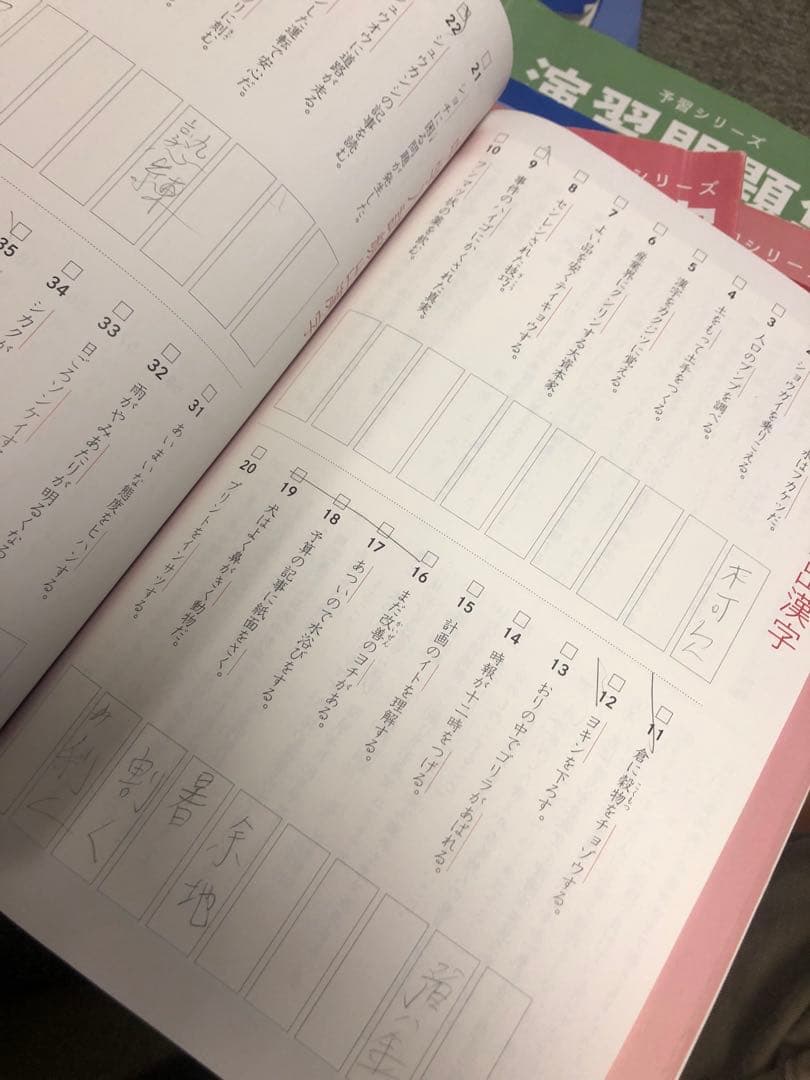 予習シリーズ
演習問題
シリーズ
シリーズ
漢字
水はフカケツだ。
ショウガイを乗りこえる。
3 人口のブンプを調べる。
4 土をもって土手をつくる。
5 漢字をカクジツに覚える。
6 産業界にクンリンする大資本家。
7 よい品を安くテイキョウする。
8 センレンされた技巧。
9 事件のハイゴにかくされた真実。
10 フンマツ状の薬を飲む。
不可欠
11 倉に穀物をチョゾウする。
こくもつ
12 ヨキンを下ろす。
13 おりの中でゴリラがあばれる。
14 時報が十二時をつげる。
15 計画のイトを理解する。
16 まだ改善のヨチがある。
かいぜん
17 あついので水浴びをする。
18 予算の記事に紙面をさく。
19 犬はよく鼻がきく動物だ。
20 プリントをインサツする。
余地
暑
割く
21 ショチに困る問題が発生した。
22 シュウカンシの記事を読む。
ュウオウに道路が走る。
した運転で安心だ。
りに刻む。
きざ
熟練
31 あいまいな態度をヒハンする。
32 雨がやみあたりが明るくなる
33 日ごろソンケイす
34 シカクが
35